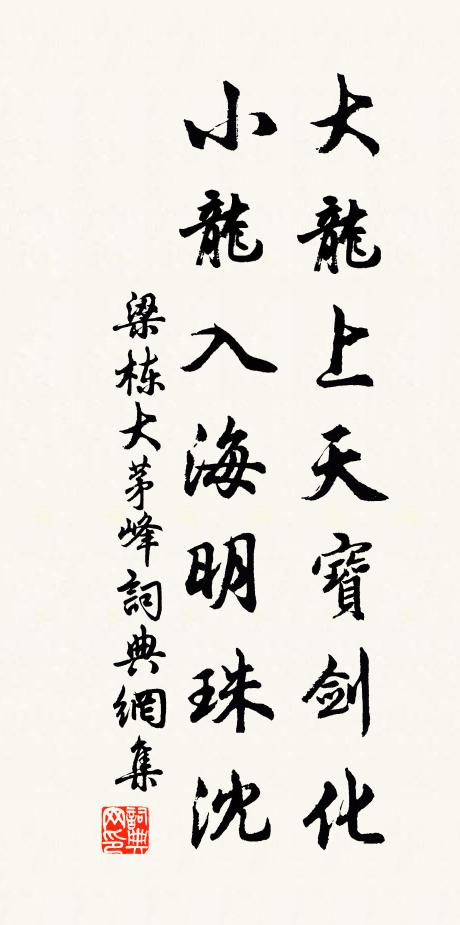 大龍上天寶劍化
小龍入海明珠沈
梁栋大茅峰詞典網集
詞典网印